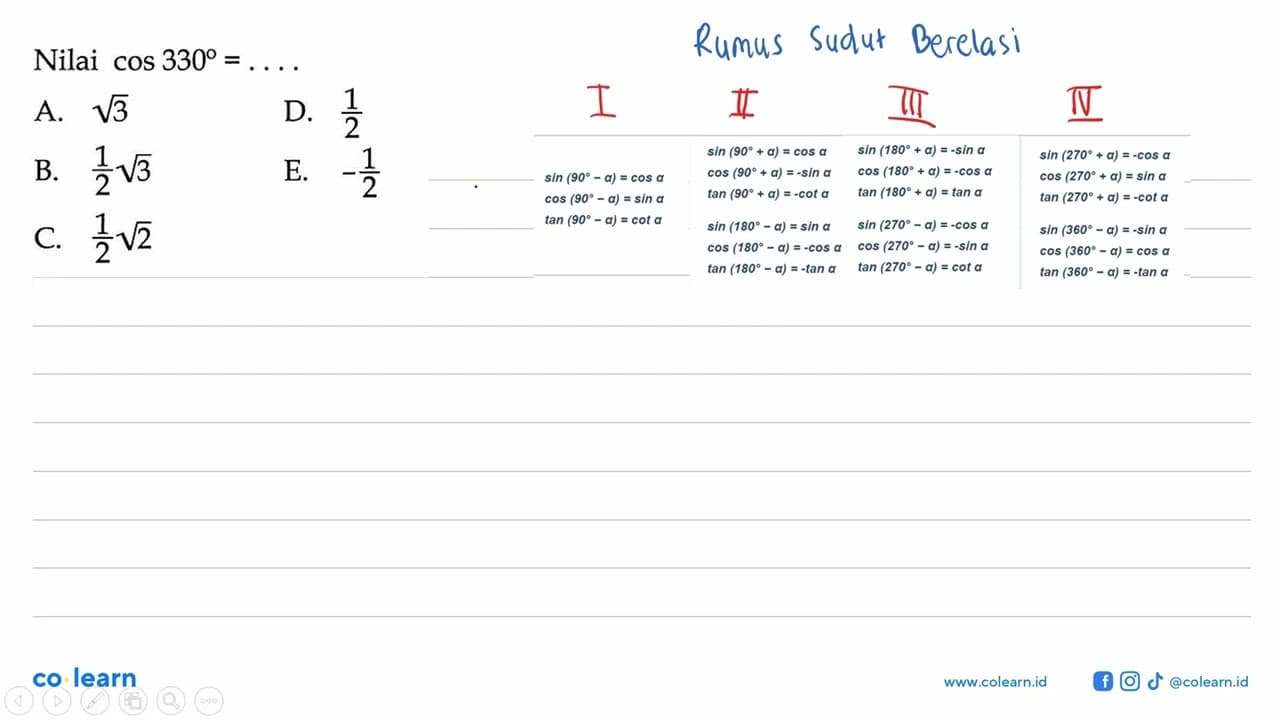 Nilai cos 330° = ....
A. √3
B. 1/2 √3
C. 1/2 √2
D. 1/2
E. -1/2
Rumus Sudut Berelasi
I
sin (90° – α) = cos α
cos (90° – α) = sin α
tan (90° – α) = cot α
II
sin (90° + α) = cos α
cos (90° + α) = -sin α
tan (90° + α) = -cot α
sin (180° – α) = sin α
cos (180° – α) = -cos α
tan (180° – α) = -tan α
III
sin (180° + α) = -sin α
cos (180° + α) = -cos α
tan (180° + α) = tan α
sin (270° – α) = -cos α
cos (270° – α) = -sin α
tan (270° – α) = cot α
IV
sin (270° + α) = -cos α
cos (270° + α) = sin α
tan (270° + α) = -cot α
sin (360° – α) = -sin α
cos (360° – α) = cos α
tan (360° – α) = -tan α
co learn
www.colearn.id
@colearn.id